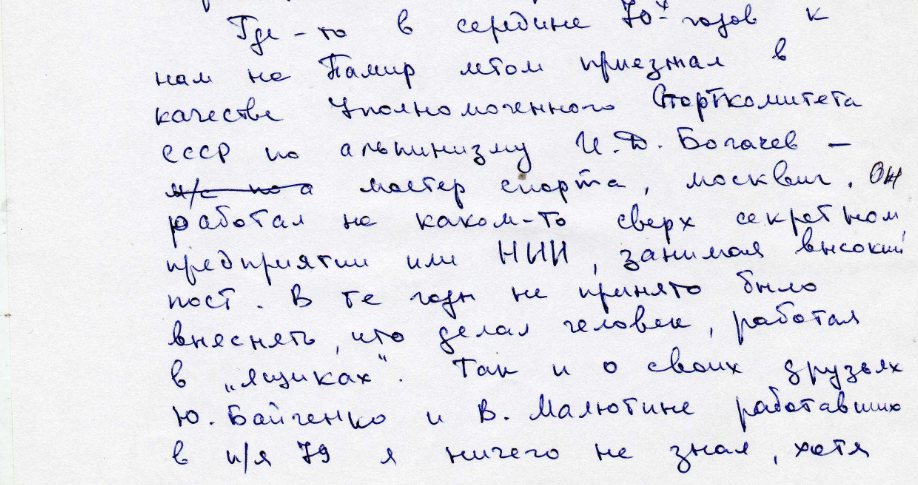 Где-то в середине 70х годов к
нам на Памир летом приезжал в
качестве Уполномоченного Спорткомитета
СССР по альпинизму И.Д. Богачев –
м/с по а мастер спорта, москвич. Он
работал на каком-то сверх секретном
предприятии или НИИ, занимая высокий
пост. В те годы не принято было
выяснять, что делал человек, работая
в „ящиках". Так и о своих друзьях
Ю. Байченко и В. Малютине работавших
в п/я 79 я ничего не знал, хотя